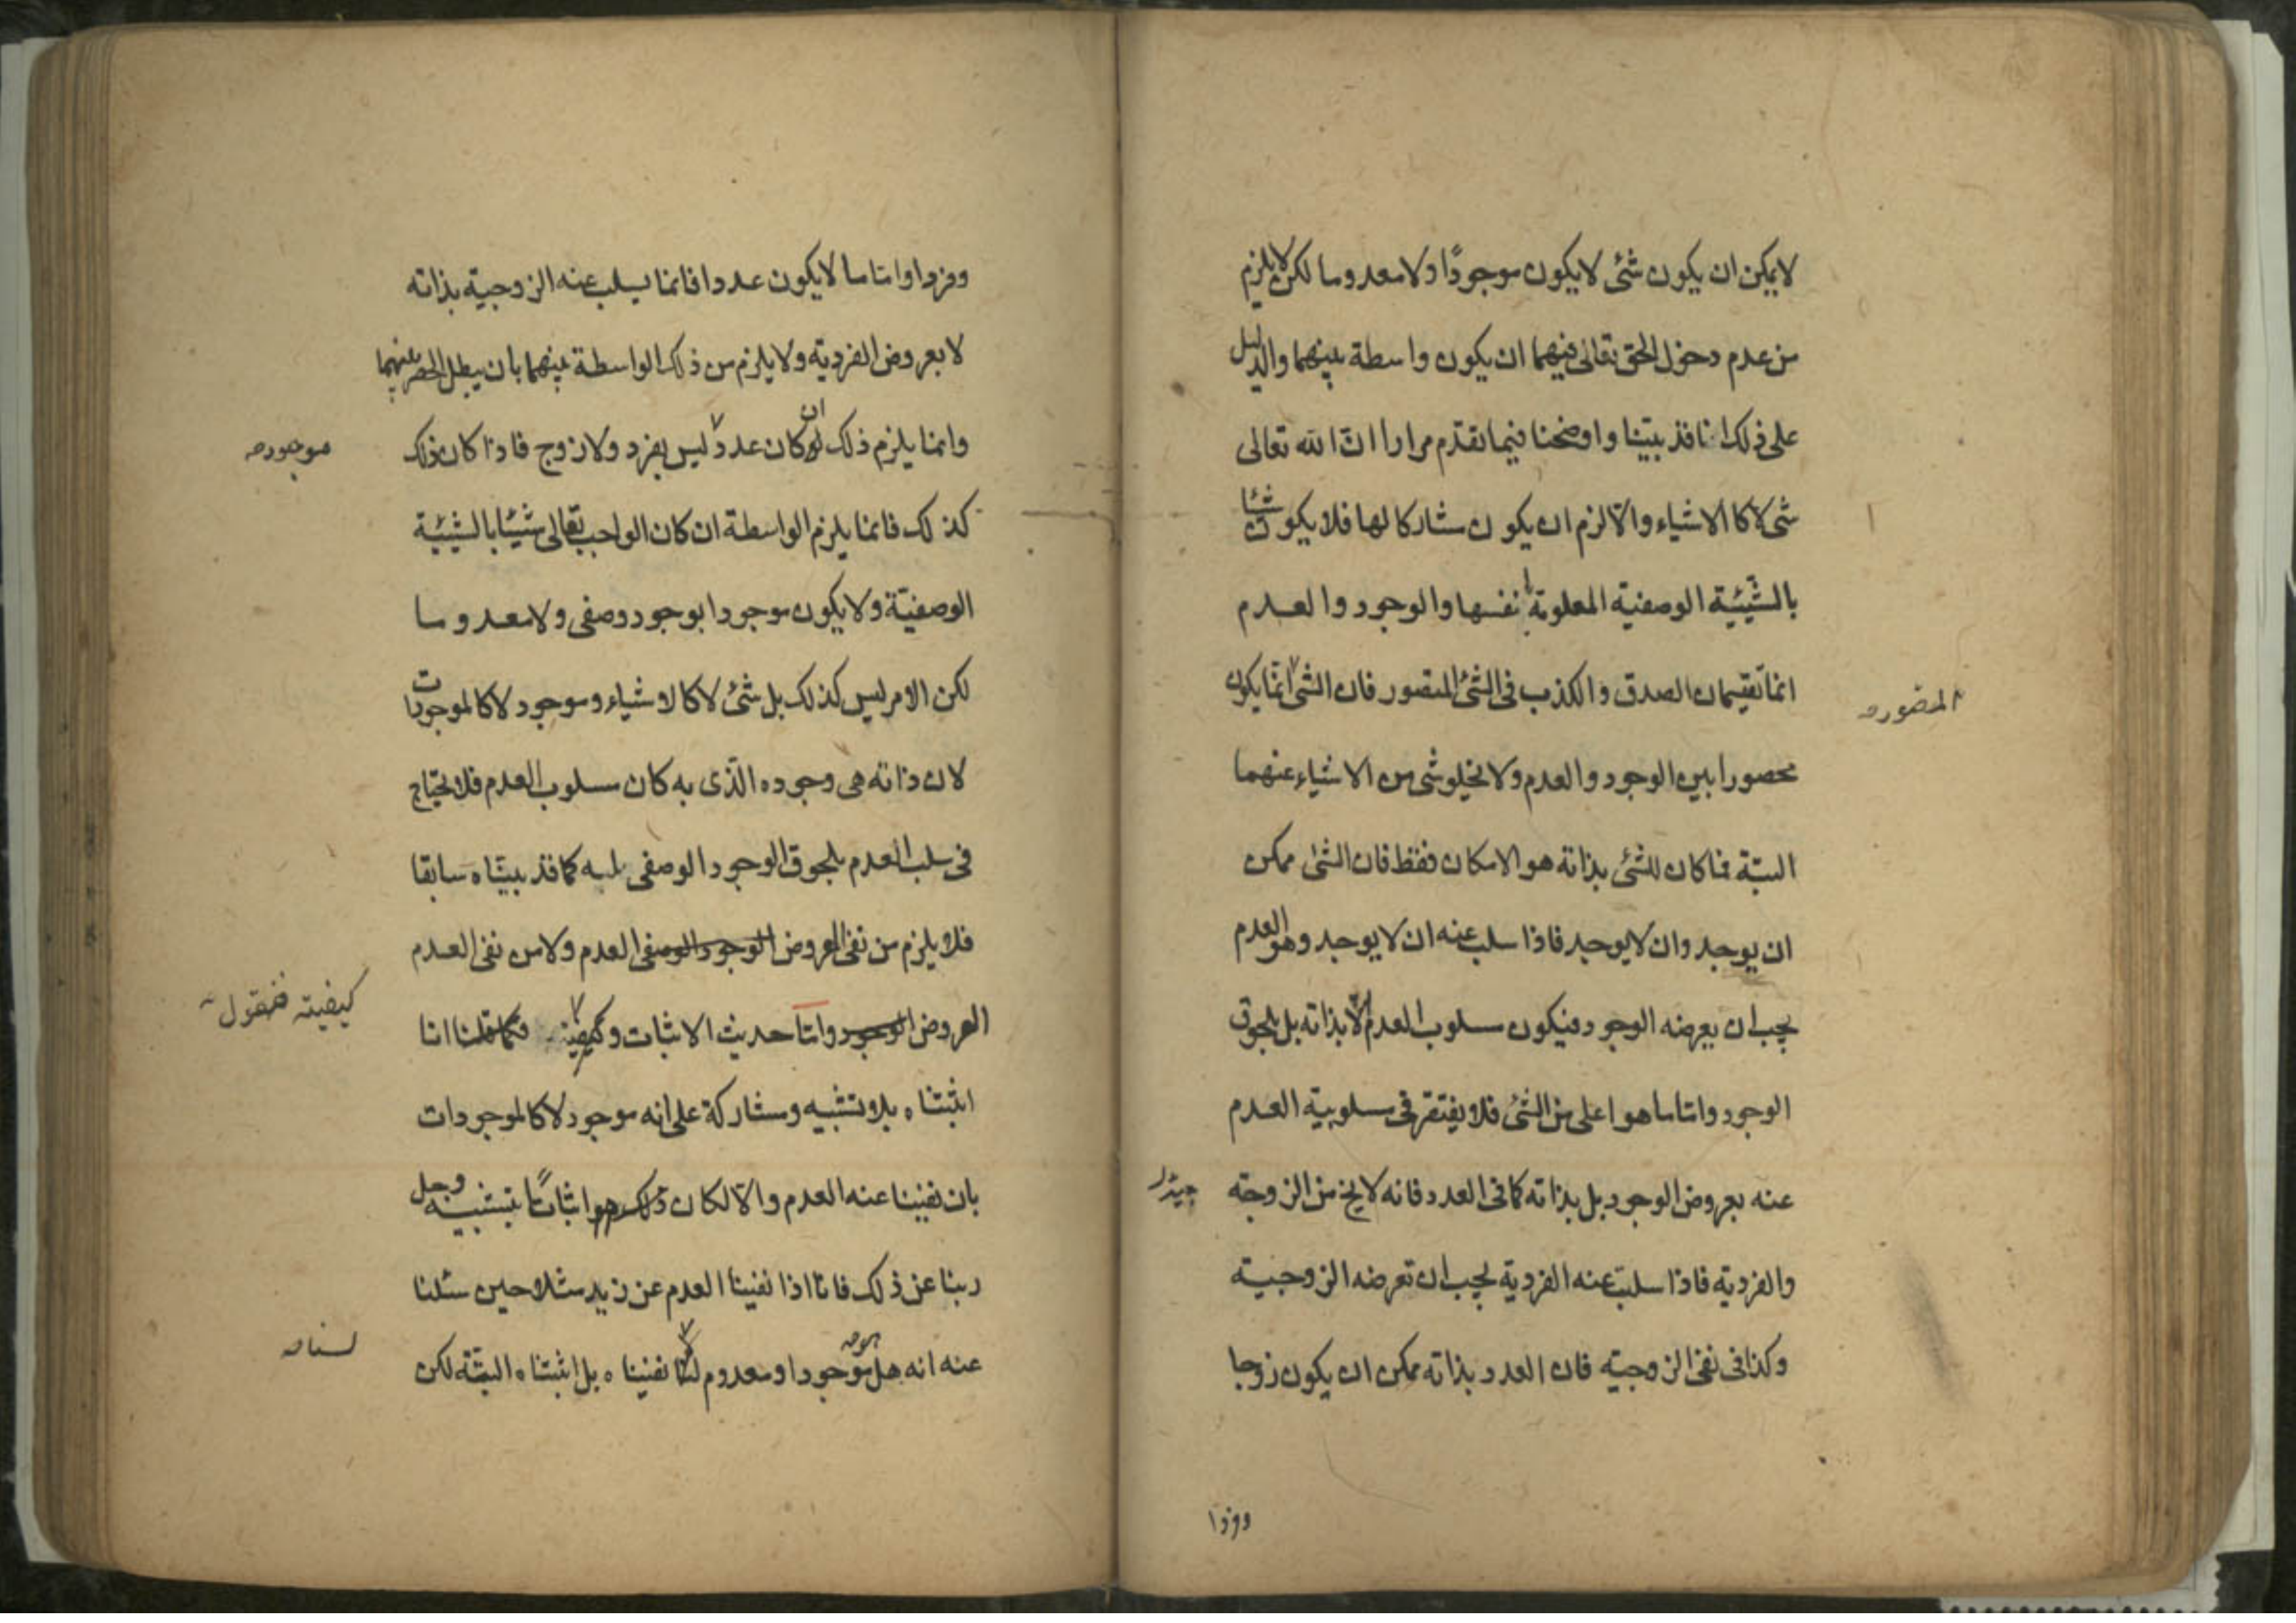 لا يمكن ان يكون شئ لا يكون موجودًا ولا معدوما لكن لا يلزم
من عدم دخول الحق تعالى فيهما ان يكون واسطة بينهما والدليل
على ذلك انا قد بيّنا واوضحنا فيما تقدّم مرارا انّ الله تعالى
شئ لا كالاشياء والّا لزم ان يكون مشاركا لها فلا يكون شيئا
بالشّيئيّة الوصفية المعلومة انفسها والوجود والعدم
انما تقيسمان الصدق والكذب فى الشئ المتصور فان الشئ انّما يكون
المتصور
محصورا بين الوجود والعدم ولا يخلو شئ من الاشياء عنهما
البتّة فما كان للشئ بذاته هو الامكان فقط فان الشئ ممكن
ان يوجد وان لا يوجد فاذا سلب عنه ان لا يوجد وهو العدم
يجب ان يعرضه الوجود فيكون مسلوب العدم لا بذاته بل بلحوق
الوجود وامّا ما هو اعلى من الشئ فلا يفتقر فى مسلوبية العدم
عنه بعروض الوجود بل بذاته كما فى العدد فانه لا يخ من الزوجيّة
والفرديّة فاذا سلبت عنه الفرديّة يجب ان تعرضه الزوجيّة
وكذا فى نفى الزوجيّة فان العدد بذاته ممكن ان يكون زوجا
وفردا
وفردا وامّا ما لا يكون عددا فانما يسلب عنه الزوجيّة بذاته
لا بعروض الفرديّة ولا يلزم من ذلك الواسطة بينهما بان يبطل الحصر بينهما
وانما يلزم ذلك ان لو كان عدد ليس بفرد ولا زوج فاذا كان ذلك
موجود
كذلك فانما يلزم الواسطة ان كان الواجب تعالى شيئا بالشيئيّة
الوصفيّة ولا يكون موجودا بوجود وصفى ولا معدوما
لكن الامر ليس كذلك بل شئ لا كالاشياء وموجود لا كالموجودات
لان ذاته هى وجوده الّذى به كان مسلوب العدم فلا يحتاج
فى سلب العدم بلحوق الوجود الوصفى له كما قد بيّناه سابقا
فلا يلزم من نفى العروض الوجود الوصفى العدم ولا من نفى العدم
العروض الوجود وامّا حديث الاثبات وكيفيّته فكما قلنا انا
كيفيته فنقول
اثبتناه بلا تشبيه ومشاركة على انه موجود لا كالموجودات
بان نفينا عنه العدم والّا لكان ذلك هو اثباتًا بتشبيه وجل
ربنا عن ذلك فانّا اذا نفينا العدم عن زيد مثلا حين سئلنا
عنه انه هل هو موجود او معدوم لسنا نفيناه بل اثبتناه البتّة لكن
لسنا